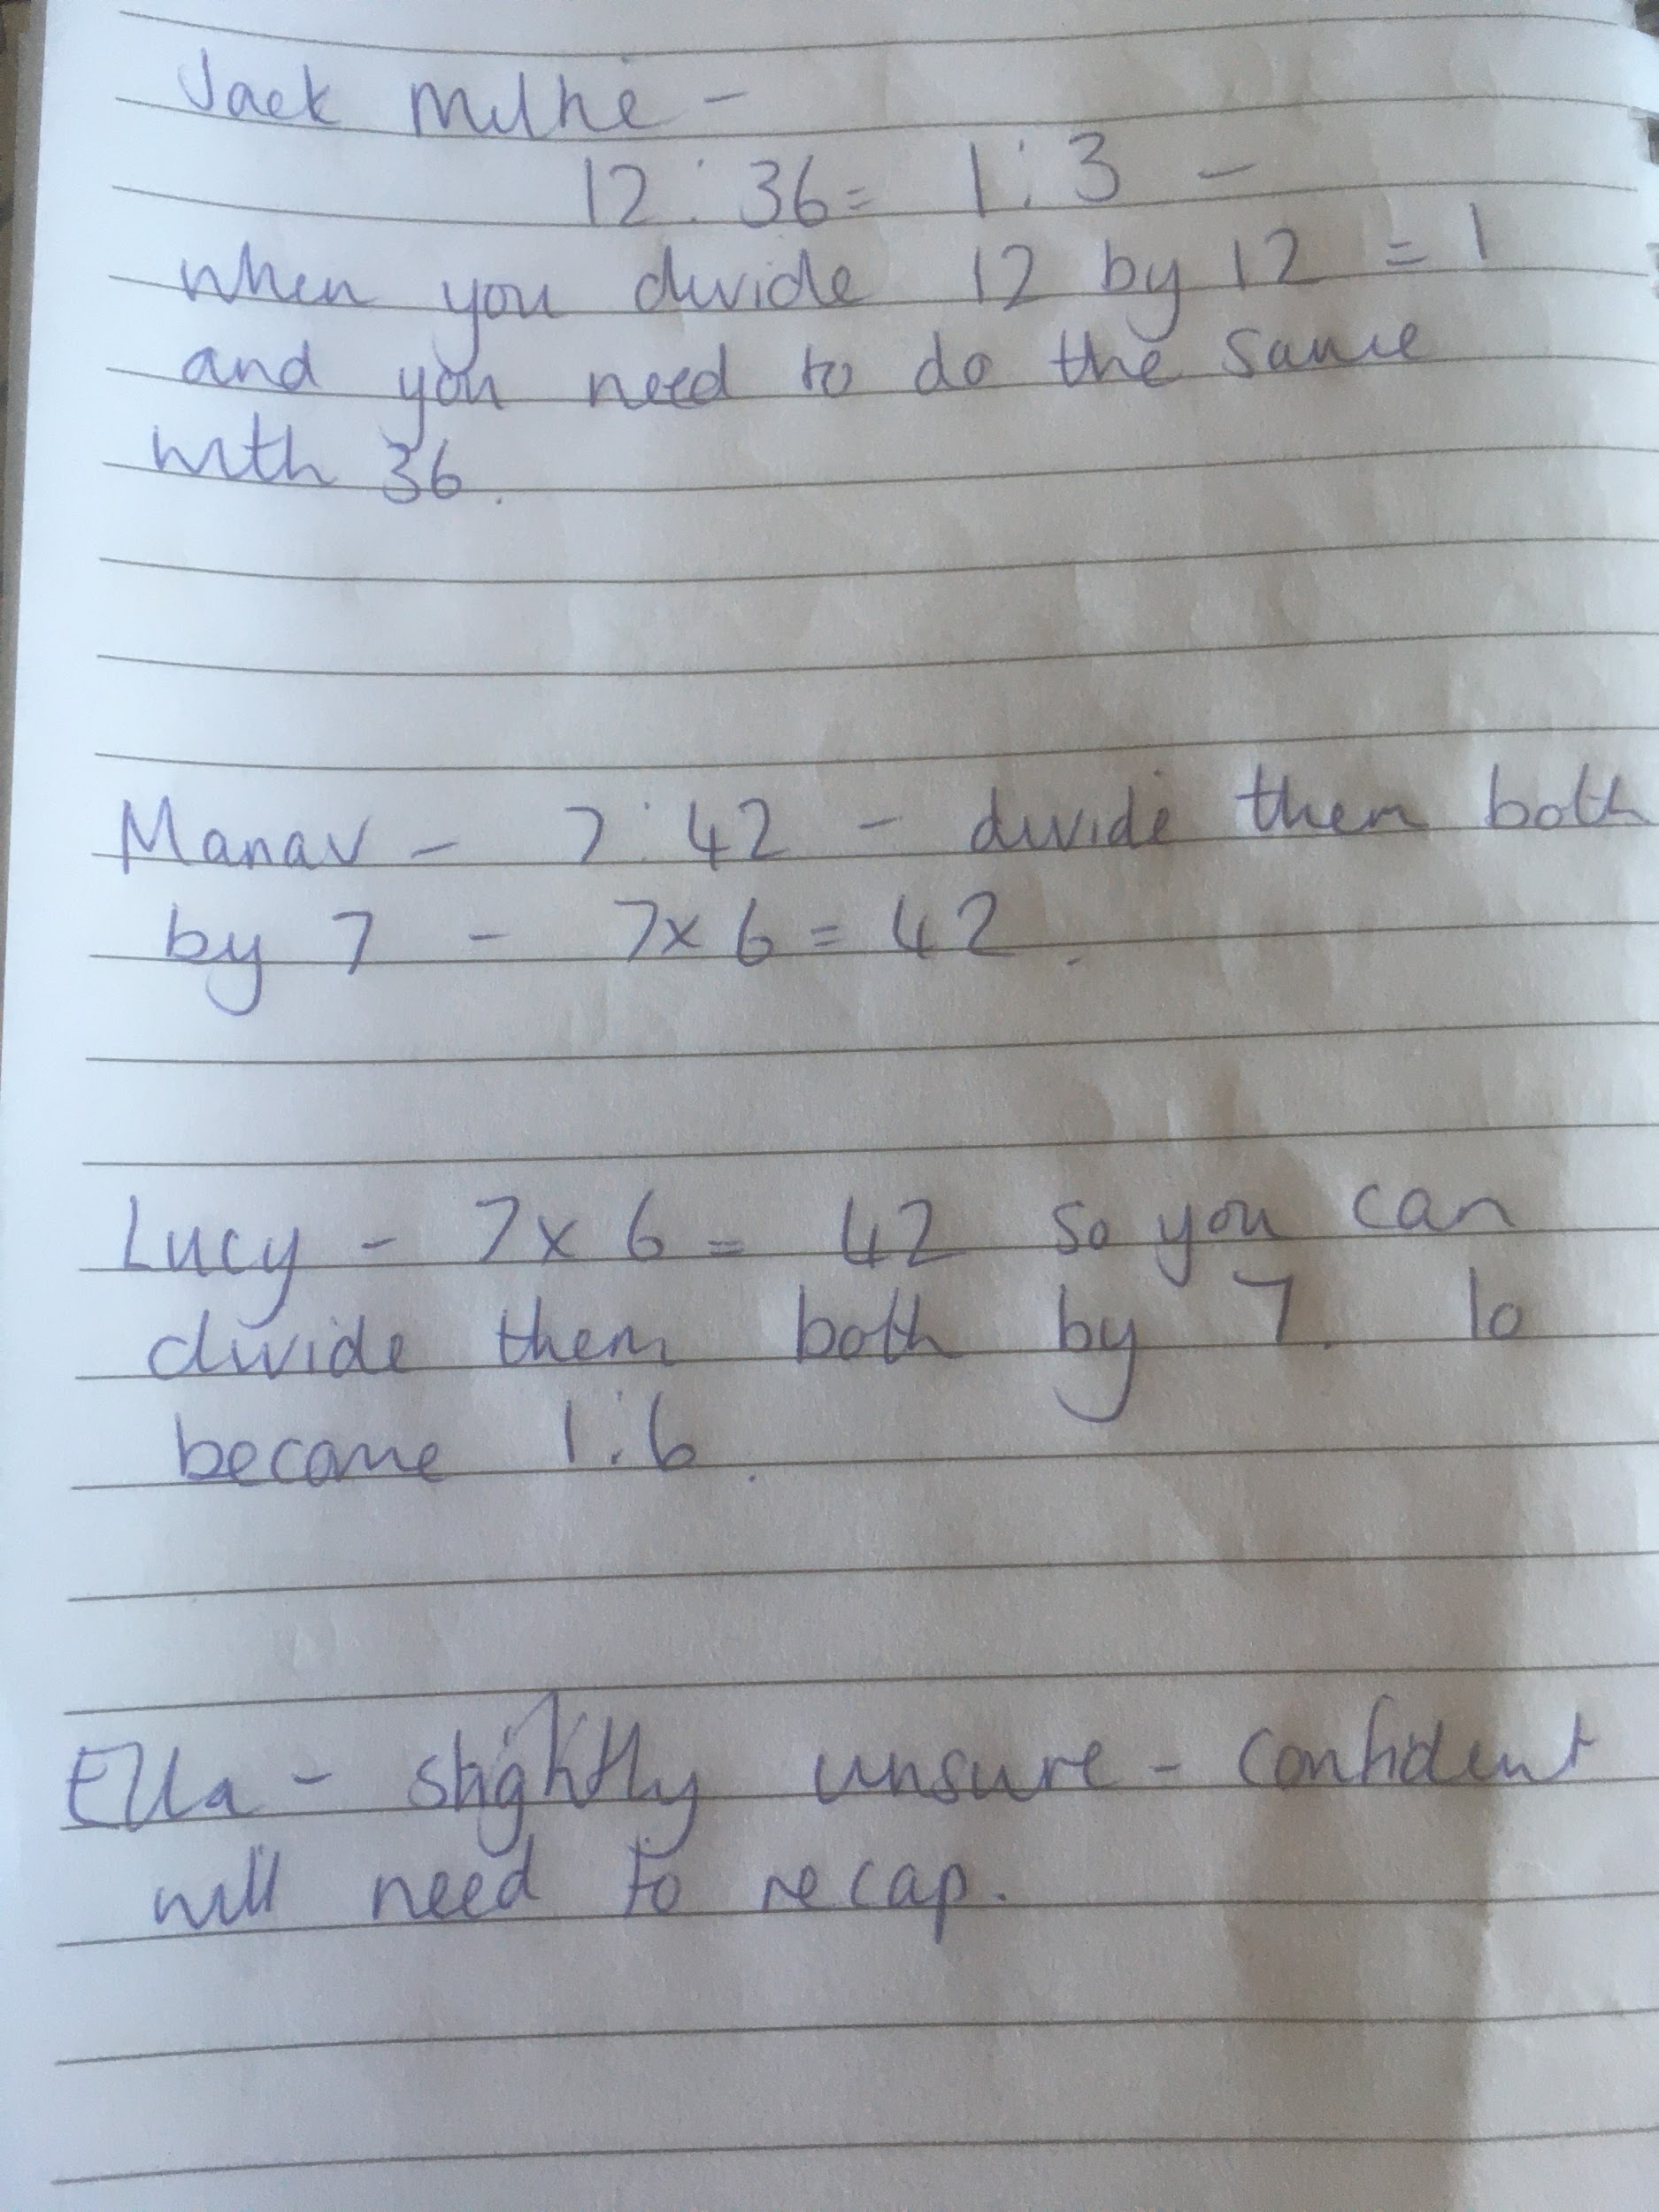 Jack Milne -
12 : 36 = 1 : 3 -
when you divide 12 by 12 = 1
and you need to do the same
with 36.
Manav - 7 : 42 - divide them both
by 7 - 7 x 6 = 42.
Lucy - 7 x 6 = 42 so you can
divide them both by 7. to
become 1 : 6.
Ella - slightly unsure - confident
will need to recap.